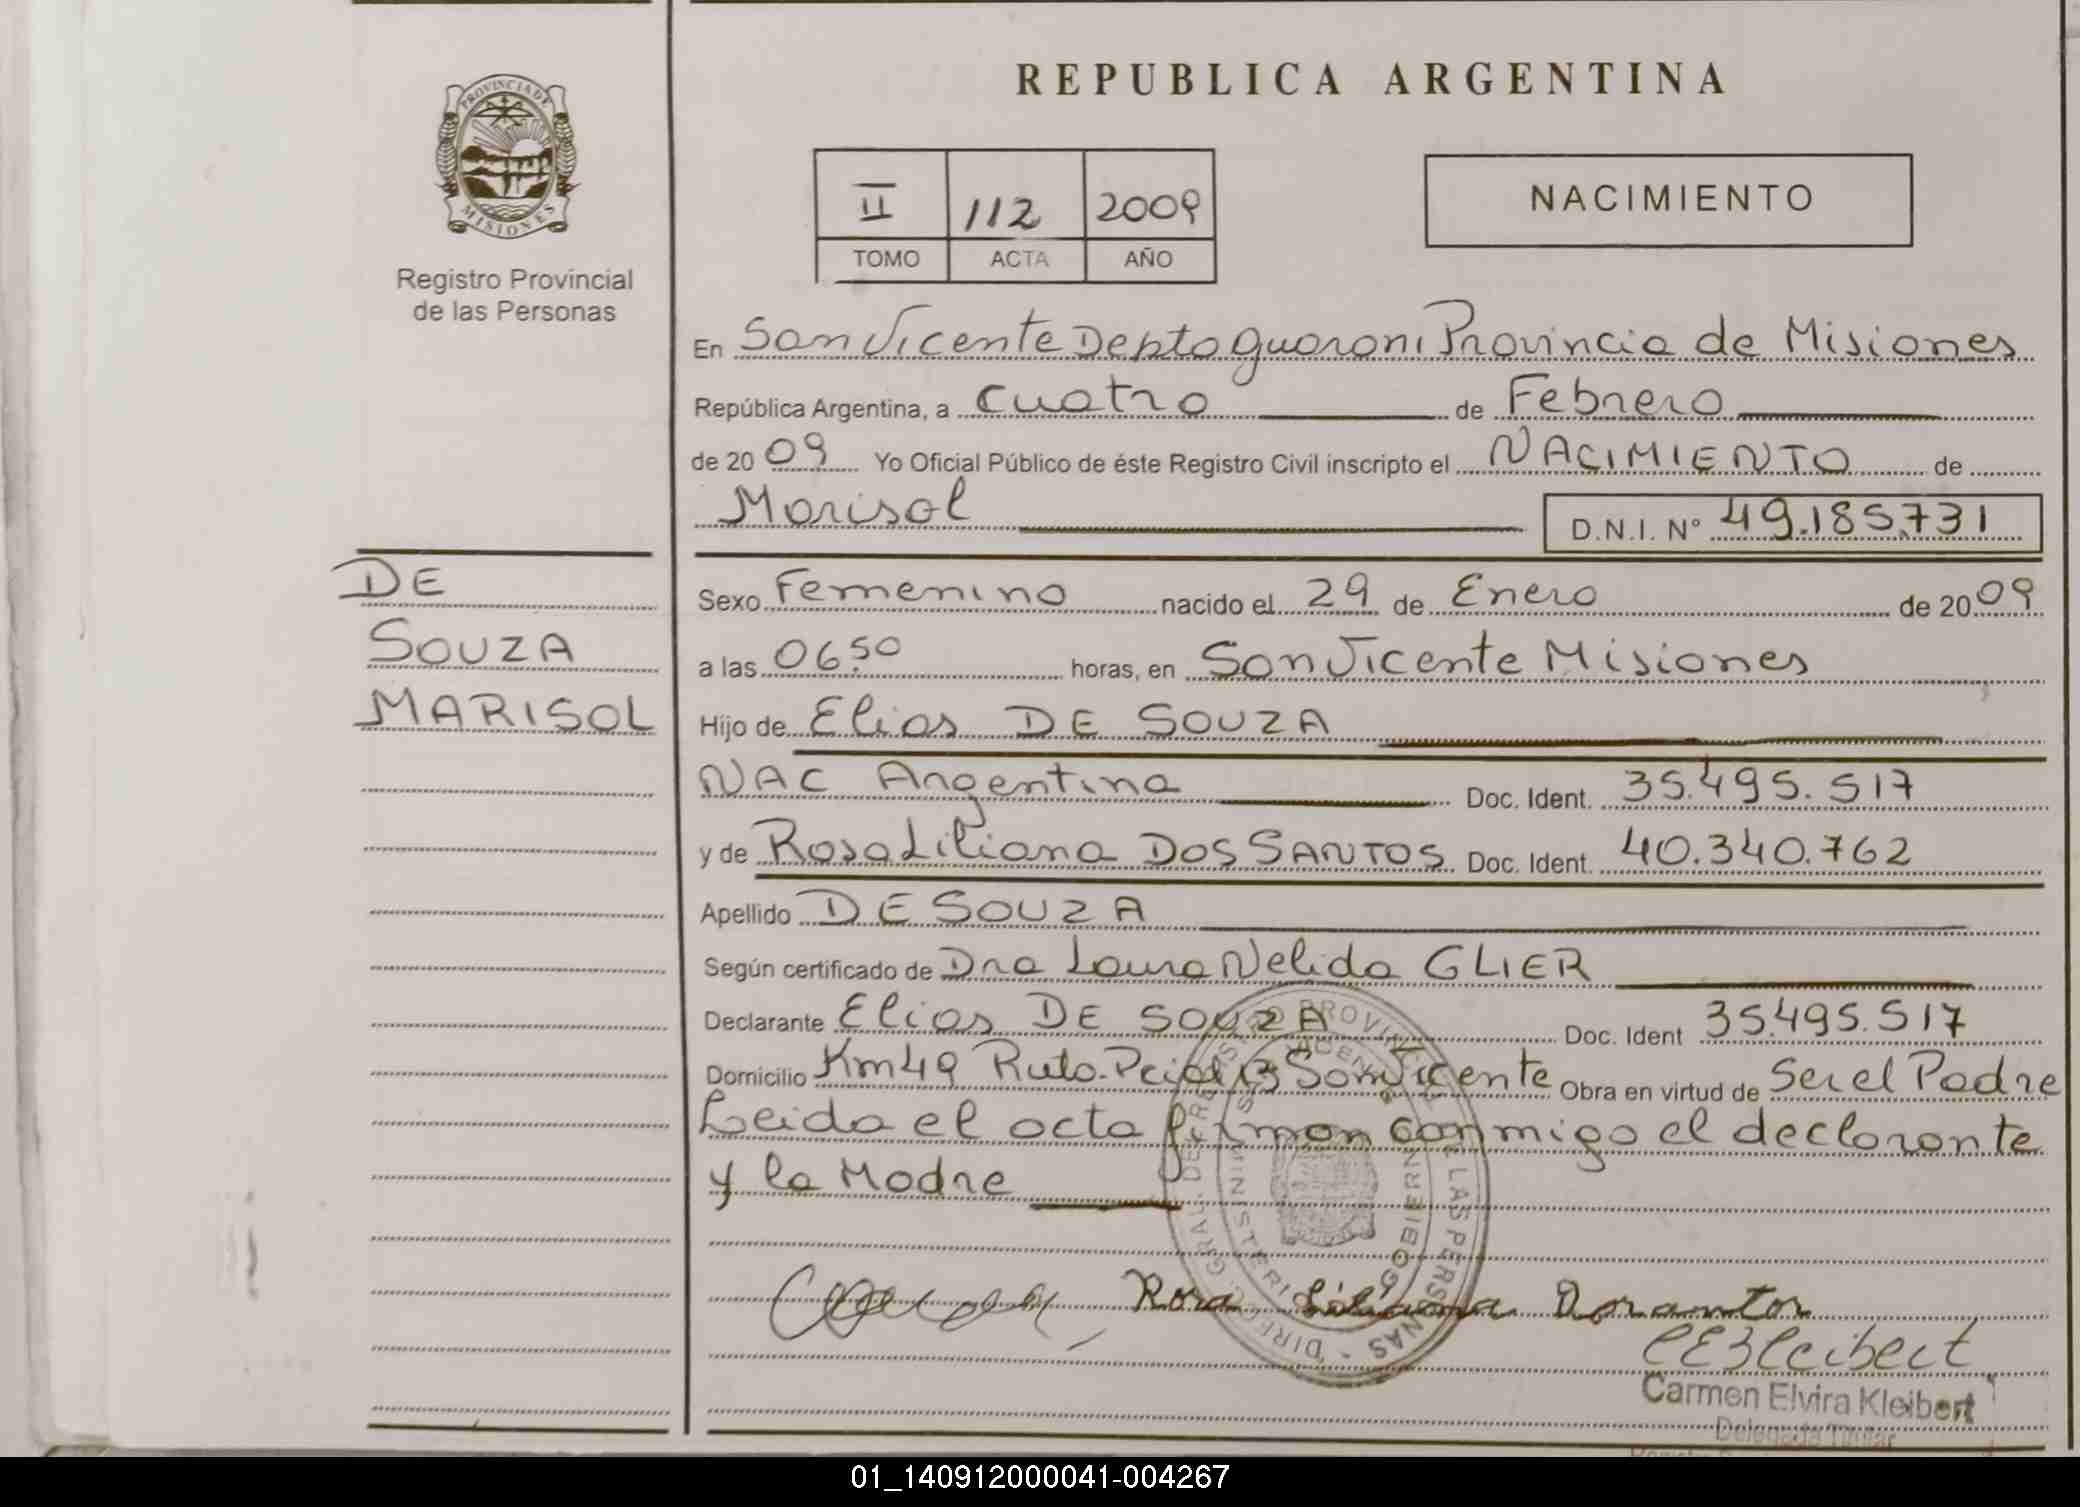 PROVINCIA DE
MISIONES
Registro Provincial
de las Personas
REPUBLICA ARGENTINA
II 112 2009
TOMO ACTA AÑO
NACIMIENTO
En San Vicente Depto Guaroni Provincia de Misiones
República Argentina, a cuatro de Febrero
de 2009 Yo Oficial Público de éste Registro Civil inscripto el NACIMIENTO de
Marisol D.N.I. Nº 49.185.731
DE
SOUZA
MARISOL
Sexo Femenino nacido el 29 de Enero de 2009
a las 0650 horas, en San Vicente Misiones
Hijo de Elias DE SOUZA
NAC Argentina Doc. Ident. 35.495.517
y de Rosa Liliana DOS SANTOS Doc. Ident. 40.340.762
Apellido DE SOUZA
Según certificado de Dra Laura Nelida GLIER
Declarante Elias DE SOUZA Doc. Ident 35.495.517
Domicilio Km 49 Ruta Pcial 13 San Vicente Obra en virtud de Ser el Padre
Leida el acta firman conmigo el declarante
y la Madre
Rosa Liliana Dosantos
CEKleibert
Carmen Elvira Kleibert
Delegada Titular
01_140912000041-004267